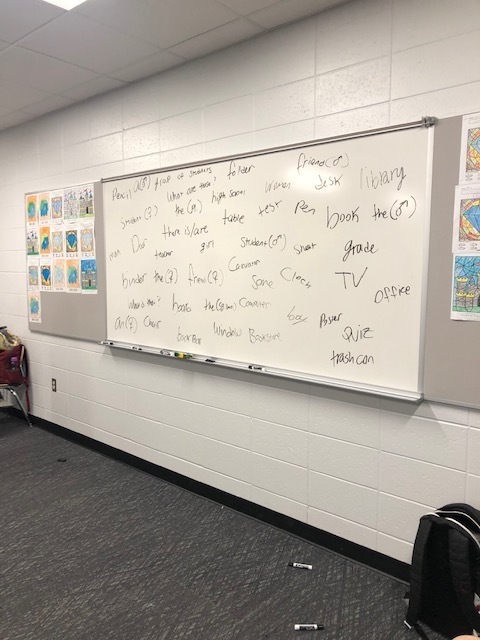 Pencil a(♂) group of students folder friend(♂)
What are these? high school women desk library
student (♀) the (♂) table test Pen book the(♂)
man Door there is/are girl Student(♂) Sheet grade
teacher
binder the (♀) friend(♀) Calculator Some Clock TV office
Who is this? board the Computer boy Poster
an(♀) Chair Window Bookstore Quiz
trash can